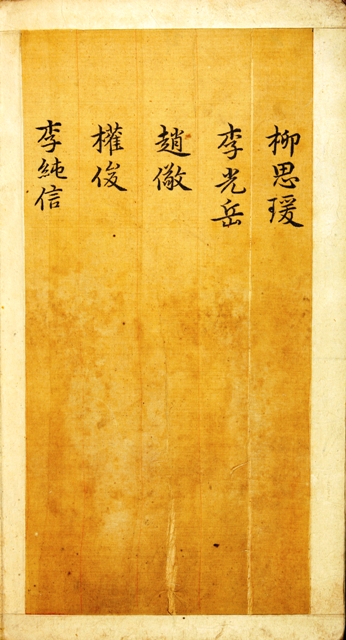 柳思瑗
李光岳
趙儆
權俊
李純信